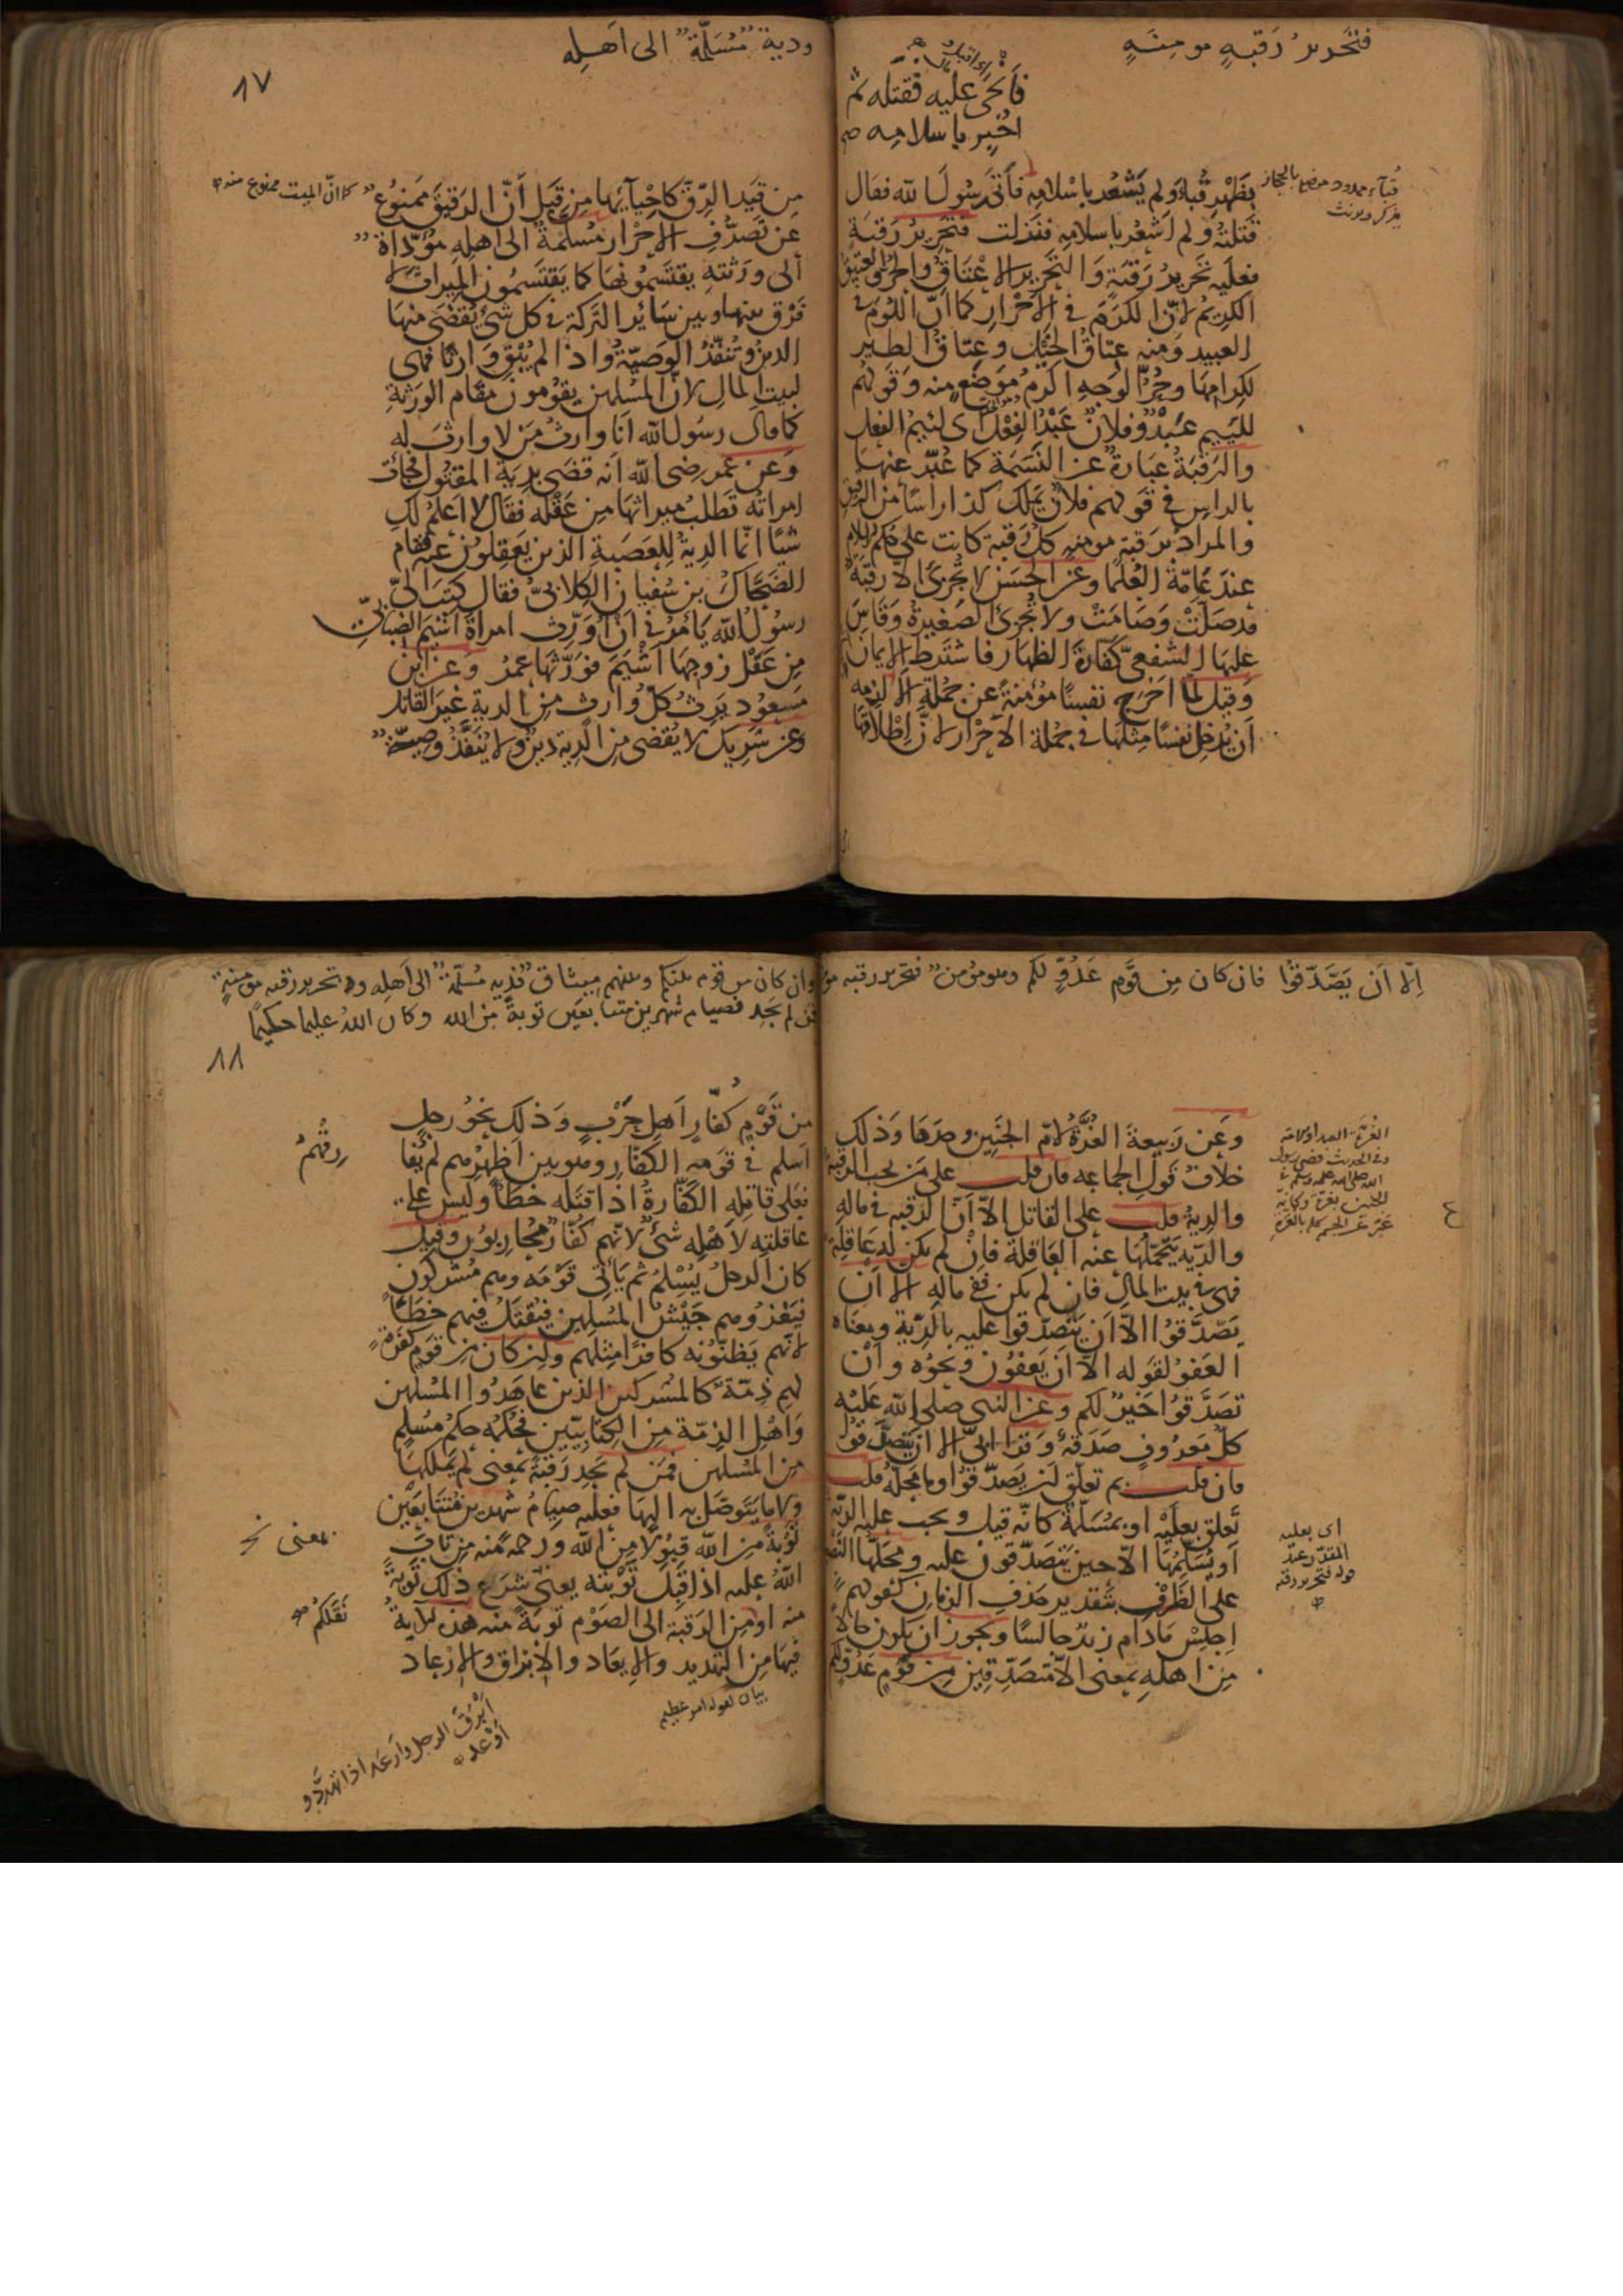 فتحرير رقبةٍ مومنةٍ
فأنحى عليه فقتله ثم
اخبر باسلامه صح
بظَهْرِ قُباءَ ولم يَشعُر باسْلامِه فأتى رسُولَ الله فقال
قتلتُه ولم اَشعُر باسلامِه فنزلت فتحرِيرُ رَقبَةٍ
فعليه تحرِيرُ رَقبَةٍ وَالتحَرِير الاِعْتَاقُ والحُرُّ العَتِيقُ
الكرِيمُ لانّ الكرَمَ في الاَحْرارِ كما انّ اللُومَ في
العبيد وَمنه عِتاقُ الخَيْلِ وعِتاقُ الطيرِ
لكِرامِها وحُرُّ الوَجهِ اكرَمُ موْضَعٍ منه وَقوْلهُم
للئيم عَبْدٌ وفلانٌ عَبْدُ الفِعْلِ اى لئيمُ الفعل
والرَقبَةُ عبَارةٌ عن النَسَمَة كما عُبِّر عنها
بالراسِ في قولهم فلانٌ يَملك كذا راسًا من الرقيق
والمرادُ برَقبَةٍ مومنةٍ كلُّ رُقبة كانت على حُكم الاسلام
عندَ عَامّة العُلمَا وعن الحسَن لا تُجزئ الا رقبةٌ
قد صَلّتْ وَصَامَتْ ولا تُجزئ الصَغِيرةُ وَقاسَ
عليهَا الشفعىّ كفّارةَ الظهَار فاشترط الايمانَ
وَقِيل لمّا اخرَج نفسًا مؤمِنةً عن جُملة الاحياء لزمه
اَن يُدخِل نفسًا مثلهَا في جملة الاَحْرار لانّ اِطْلاقهَا
قُبآء ممدود موضع بالحجاز
يذكر ويونث
ودية مُسَلّمة الى اَهلِه
٨٧
مِن قيَد الرِّقّ كاحْيآئِها مِن قِبَل اَنّ الرَقيقَ مَمنوُع
عن تصَرُّفِ الاحْرار مُسلَّمةٌ الى اهلِهِ موَدّاة
الى ورَثتِه يقتَسِمُونهَا كما يَقتَسِمُون المِيراثَ لا
فَرْق بينها وبين سَائر التَركة في كل شئ يُقضَى منهَا
الدينُ وتُنفَّذُ الوَصِيّةُ واذا لم يُبْقِ وَارثًا فهى
لبيتِ المالِ لانّ المُسْلمِين يقوُمونَ مقَامَ الورَثةِ
كما قال رسُول الله انَا وارثُ مَن لا وارثَ له
وَعن عمر رضى الله انه قضَى بديَة المقتُول فجاءَت
امراتُه تَطلبُ ميراثهَا مِن عَقْله فقَال لا اَعلمُ لكِ
شيئًا انّما الدِيةُ لِلعَصَبةِ الذين يَعقِلوُن عنه فقام
الضَحّاكُ بن سُفيان الكِلابىُّ فقال كتَبَ الىّ
رسوُل الله يَأمُرنى اَن اُوَرِّث امراةَ اَشْيَمَ الضِبابىِّ
مِن عَقْل زوجهَا اَشْيَمَ فوَرّثهَا عمرُ وَعن ابن
مَسعوُد يَرِثُ كلُّ وارثٍ من الدية غيرَ القاتل
وعن شَرِيك لا يُقضى من الدِية دينٌ ولا تُنَفَّذُ وصِيّةٌ
كما انّ الميت ممنوع منه
اِلّا اَن يَصَّدّقوُا فان كان مِن قَومٍ عَدُوٍّ لكم وهو مؤمن فتحرير رقبه مو
وعَن رَبيعةَ الغُرَّةُ لامّ الجَنِين وحدَها وَذلك
خلافُ قَوْلِ الجماعه فان قلتَ على مَن تجب الرقبة
والديةُ قلتُ على القاتل الاّ اَنّ الرقبه في ماله
والدِيه تتحمّلُها عنه العَاقلة فاِنْ لم يكن له عَاقِلةٌ
فهى في بيت المال فان لم يكن ففى ماله الا اَن
يَصّدّقوُا الاّ اَن يَتَصدّقوا عليه بالدِّية ومعناه
العَفو لقوله الاّ اَن يَعفوُن ونحوُه وَاَنْ
تصَدَّقوُا خَيرٌ لكم وعن النبى صلى الله عَليْه
كلُّ معرُوفٍ صَدَقةٌ وَقرَا اُبىّ الا ان يَتصَدّقوُا
فان قلت بم تعلّق اَن يَصدّقوُا وما محَلّه قلت
تعلّق بعلَيْه او بمُسَلّمَة كانّه قِيل وتجب عليه الديَةُ
اَو يُسَلّمُهَا الاّ حين يَتَصَدّقوُن عليه ومحَلّها النصب
على الظَرْف بتَقدير حذف الزمان كقولهم
اِجلِسْ مَادام زيدٌ جالسًا ويجوز ان يكون حالا
مِن اهلهِ بمعنى الاّ متصَدّقِين مِن قومٍ عدوٍّ لكم
اى بعليه
المقدّر عند
قوله فتحرير رقبه
وان كان من قوم بينكم وبينهم ميثاق فدِيه مُسَلّمة الى اَهلِه وتحرير رقبه مؤمنةٍ
فمن لم يجد فصيام شهرين متتابعَين توبةً من الله وكان اللهُ عليما حكيمًا
٨٨
مِن قوْمٍ كفّارٍ اَهلِ حَرْبٍ وَذلك نحوُ رجلٍ
اَسلم في قومه الكفّار وهو بين اَظهرِهم لم يُفا
فعَلى قاتلهِ الكفّارةُ اذا قتَله خَطأً وليس على
عاقلتِه لاَهْلِه شَئٌ لانّهم كفّارٌ مُحاربوُن وقيل
كان الرجلُ يُسْلمُ ثم يَأتى قَوْمَه وهم مُشركون
فيَغزُوهم جَيْشُ المسُلمِين فيُقتَلُ فيهم خَطَأً
لانّهم يَظنّونه كافرًا مِثلهم وَان كان مِن قومٍ كَفرةٍ
لهم ذِمّة كالمُشركين الذين عاهَدُوا المسُلمِين
وَاَهل الذِمّة من الكِتَابيّين فحُكمُه حكم مُسْلمٍ
من المسُلمِين فمَن لم يَجد رَقبَةً بمعنى لم يَملكهَا
ولا ما يَتَوصَّل به اليهَا فعليه صِيامُ شهرين مُتتَابعَيْن
توْبَةً من الله قبُولا مِن الله ورحمةً منه مِن تابَ
اللهُ عليه اذا قبِلَ توْبتَه يعنى شرَع ذلك توبَةً
منه او من الرَقبة الى الصَوْم توبةً منه هذه الايةُ
فيهَا مِن التهديد والاِيعَاد والاِبْرَاق والاِرْعاد
رِقهُم
بمعنى نخ
نَقَلكُم صح
بيان لقوله امر عظيم
اَبْرَقَ الرجل وَاَرعَد اذا تهدّد و
اَوْعد